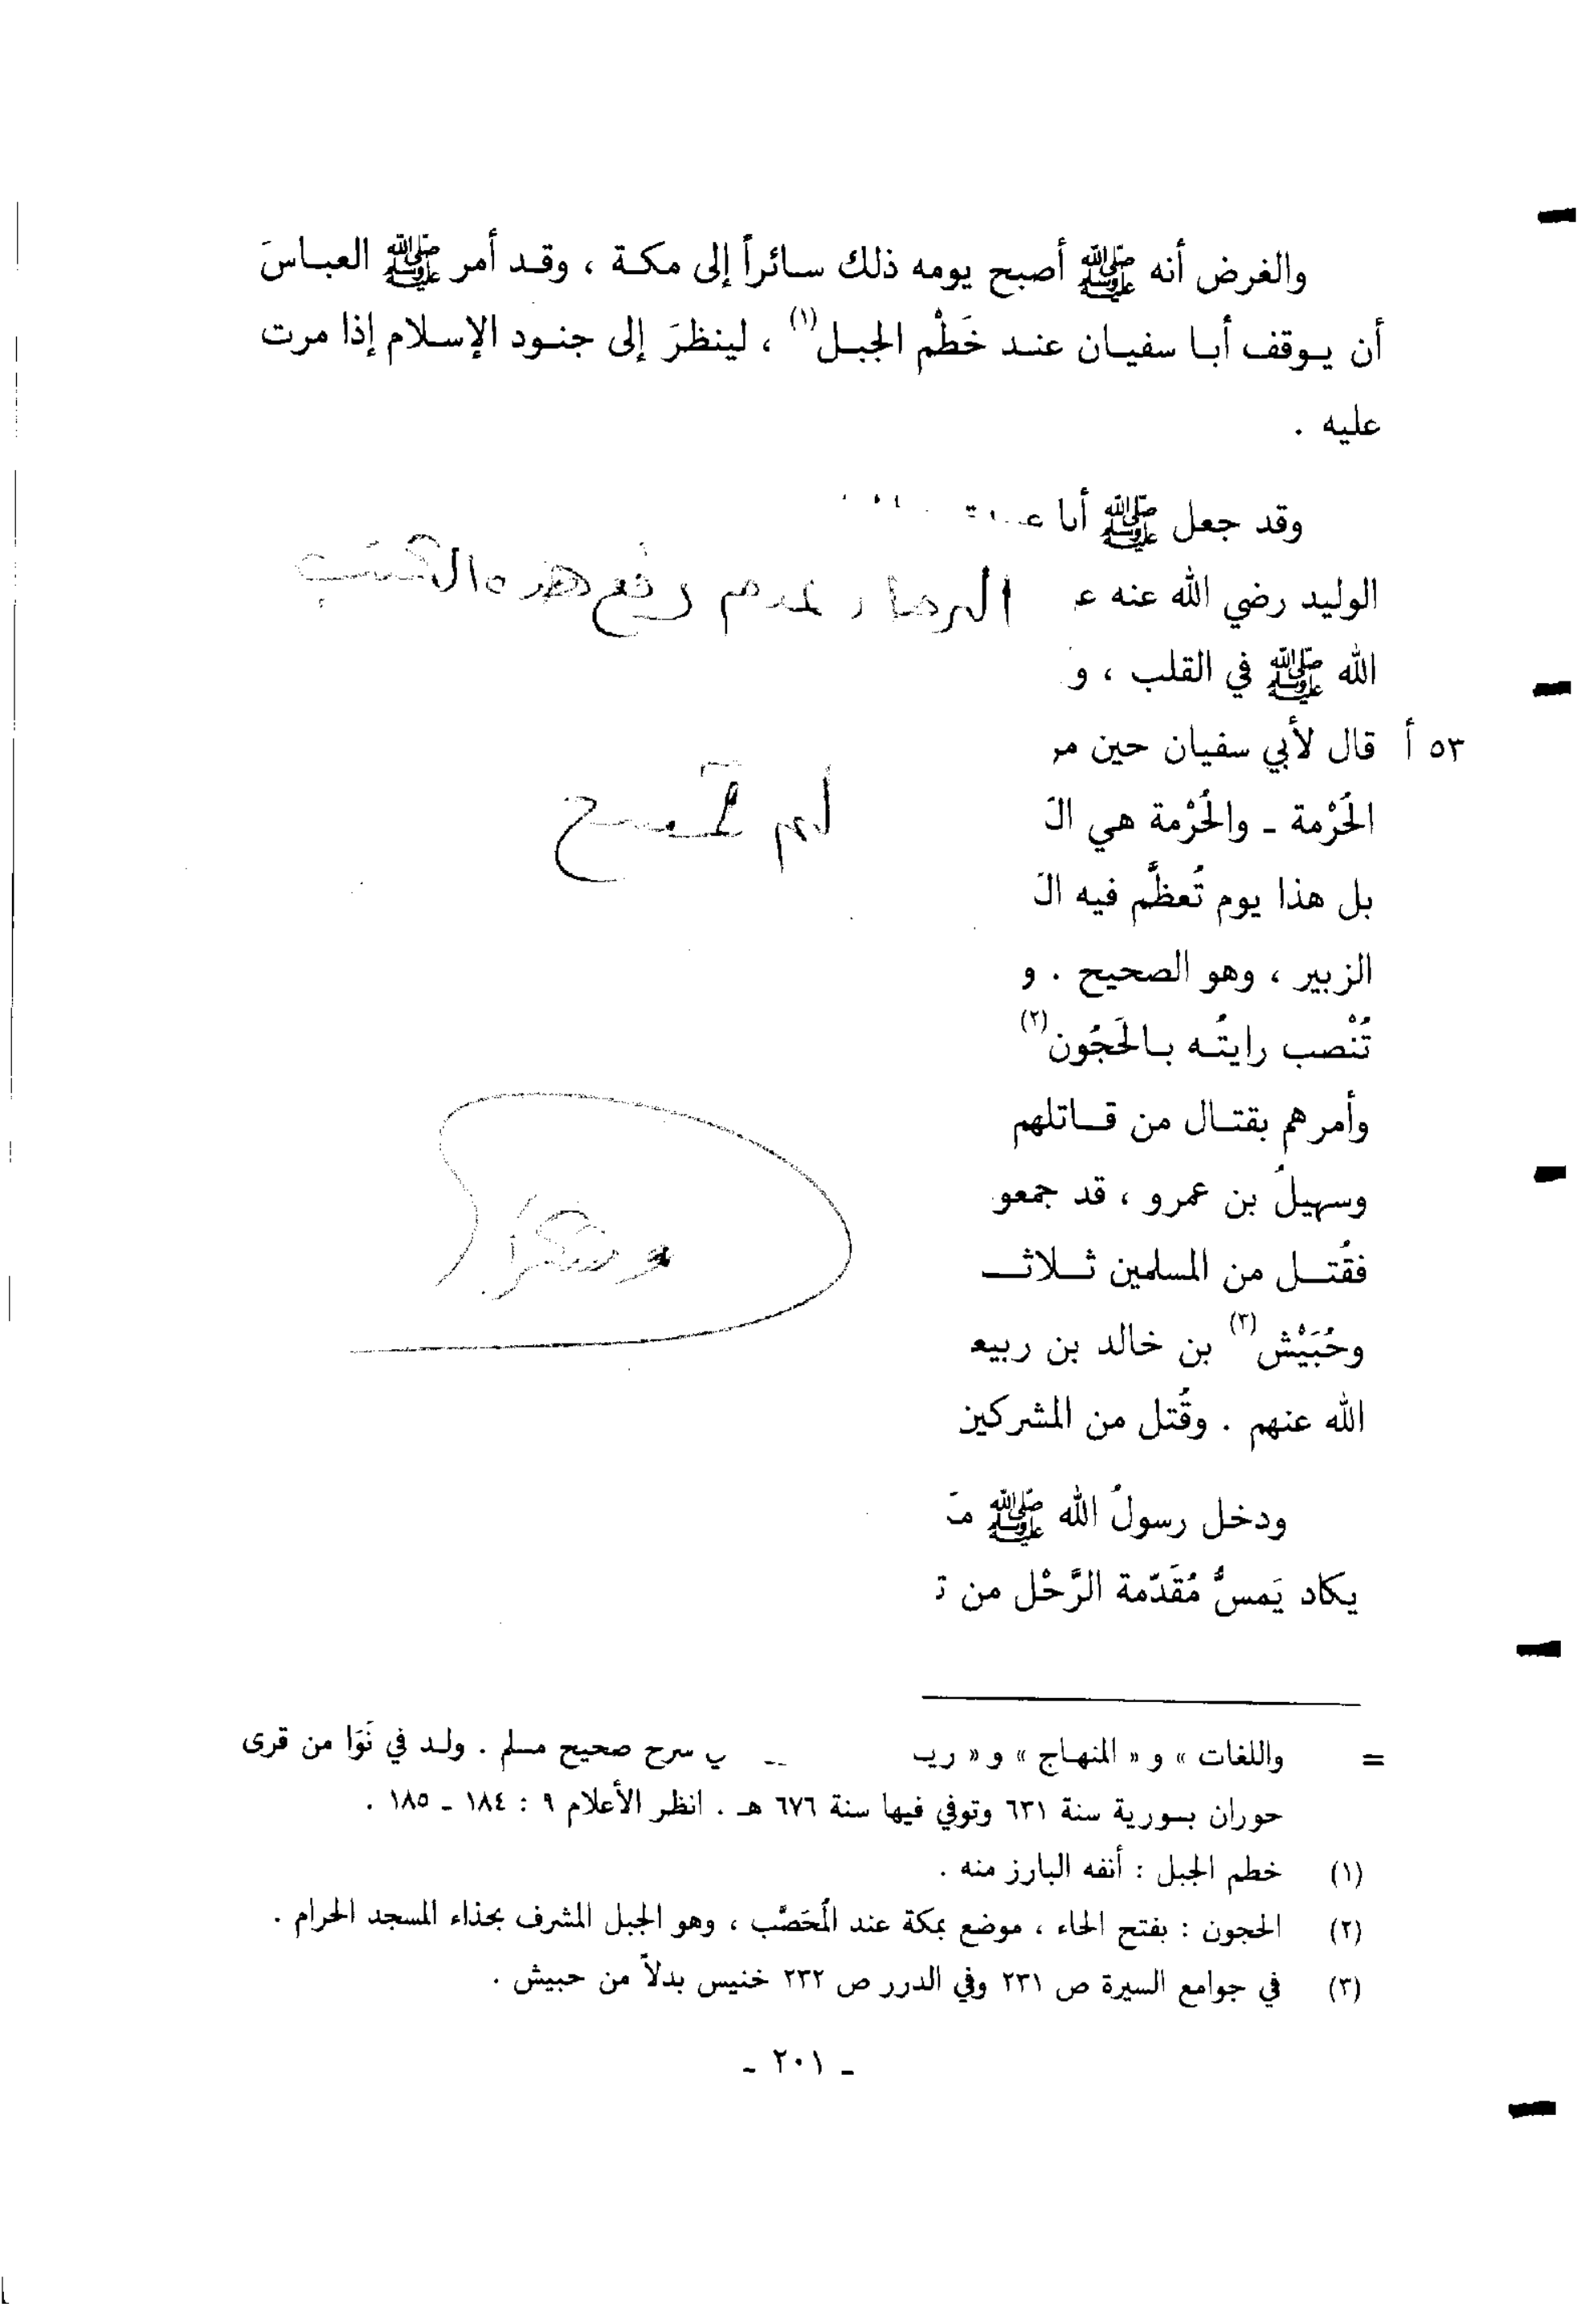 والغرض أنه ﷺ أصبح يومه ذلك سائراً إلى مكة ، وقد أمر ﷺ العباسَ
أن يوقف أبا سفيان عند خَطْم الجبل(١) ، لينظرَ إلى جنود الإسلام إذا مرت
عليه .
وقد جعل ﷺ أبا
الوليد رضي الله عنه
الرجاء عدم رفع هذه الكتب
الله ﷺ في القلب ، و
٥٣ أ قال لأبي سفيان حين
الحُرْمة - والحُرْمة هي
لم تمسح
بل هذا يوم تُعظَّم فيه
الزبير ، وهو الصحيح . و
تُنْصب رايتُه بالحَجُون(٢)
وأمرهم بقتال من قاتلهم
وسهيلُ بن عمرو ، قد
وشكراً
فقُتل من المسلمين
وحُبَيْش(٣) بن خالد بن
الله عنهم . وقُتل من المشركين
ودخل رسولُ الله ﷺ
يكاد يَمسُّ مُقَدّمة الرَّحْل من
= واللغات » و « المنهاج » و « صحيح مسلم . ولد في نَوَا من قرى
حوران بسورية سنة ٦٣١ وتوفي فيها سنة ٦٧٦ هـ . انظر الأعلام ٩ : ١٨٤ - ١٨٥ .
(١) خطم الجبل : أنفه البارز منه .
(٢) الحجون : بفتح الحاء ، موضع بمكة عند المُحَصَّب ، وهو الجبل المشرف بحذاء المسجد الحرام .
(٣) في جوامع السيرة ص ٢٣١ وفي الدرر ص ٢٣٢ خنيس بدلاً من حبيش .
- ٢٠١ -